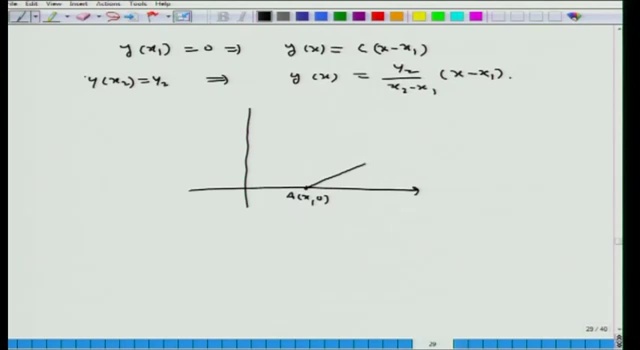 View Insert Actions Tools Help
y(x₁) = 0 ⇒ y(x) = C(x-x₁)
y(x₂) = y₂ ⇒ y(x) = y₂/(x₂-x₁) (x-x₁).
A(x,0)
29 / 40
29